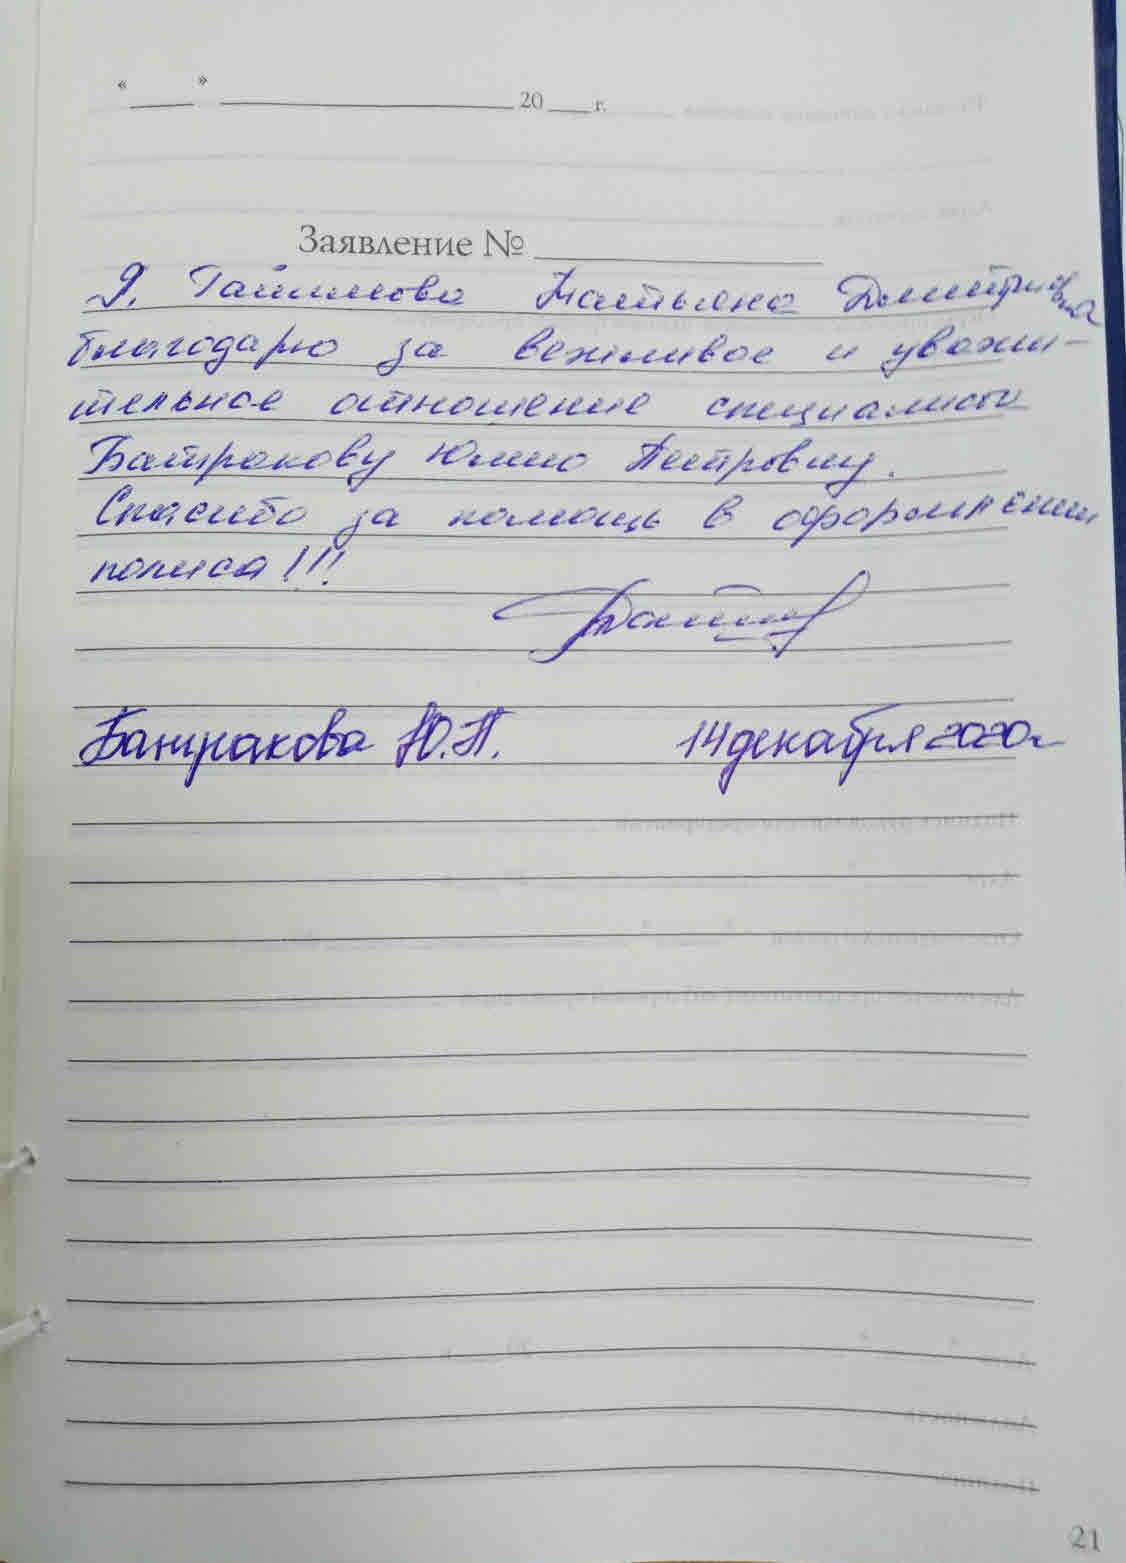 « » 20 г.
Заявление №
Я, Татьяна Дмитриевна
благодарю за вежливое и уважи-
тельное отношение специалиста
Батракову Юлию Петровну.
Спасибо за помощь в оформлении
полиса!!!
Батракова Ю.П. 14 декабря 2020г
21